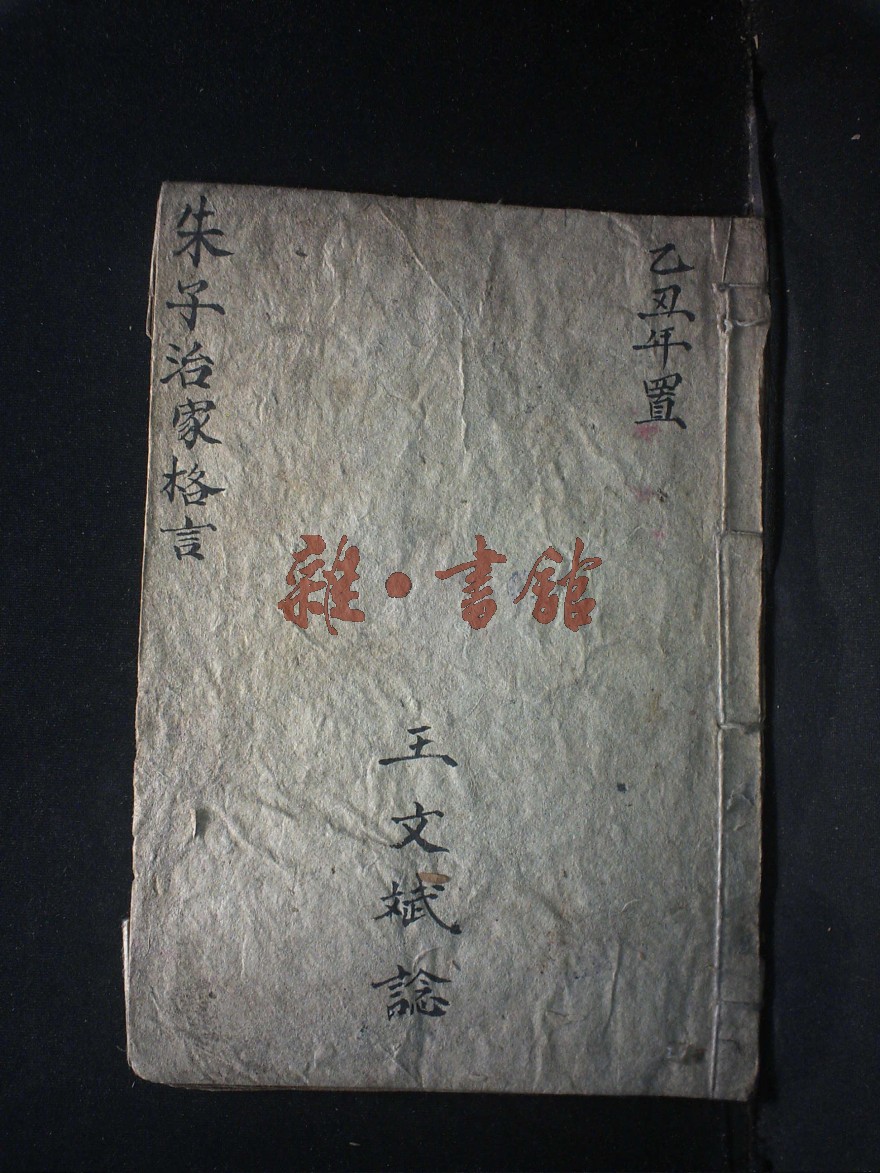 乙丑年置
王文斌諗
朱子治家格言
雜·書館